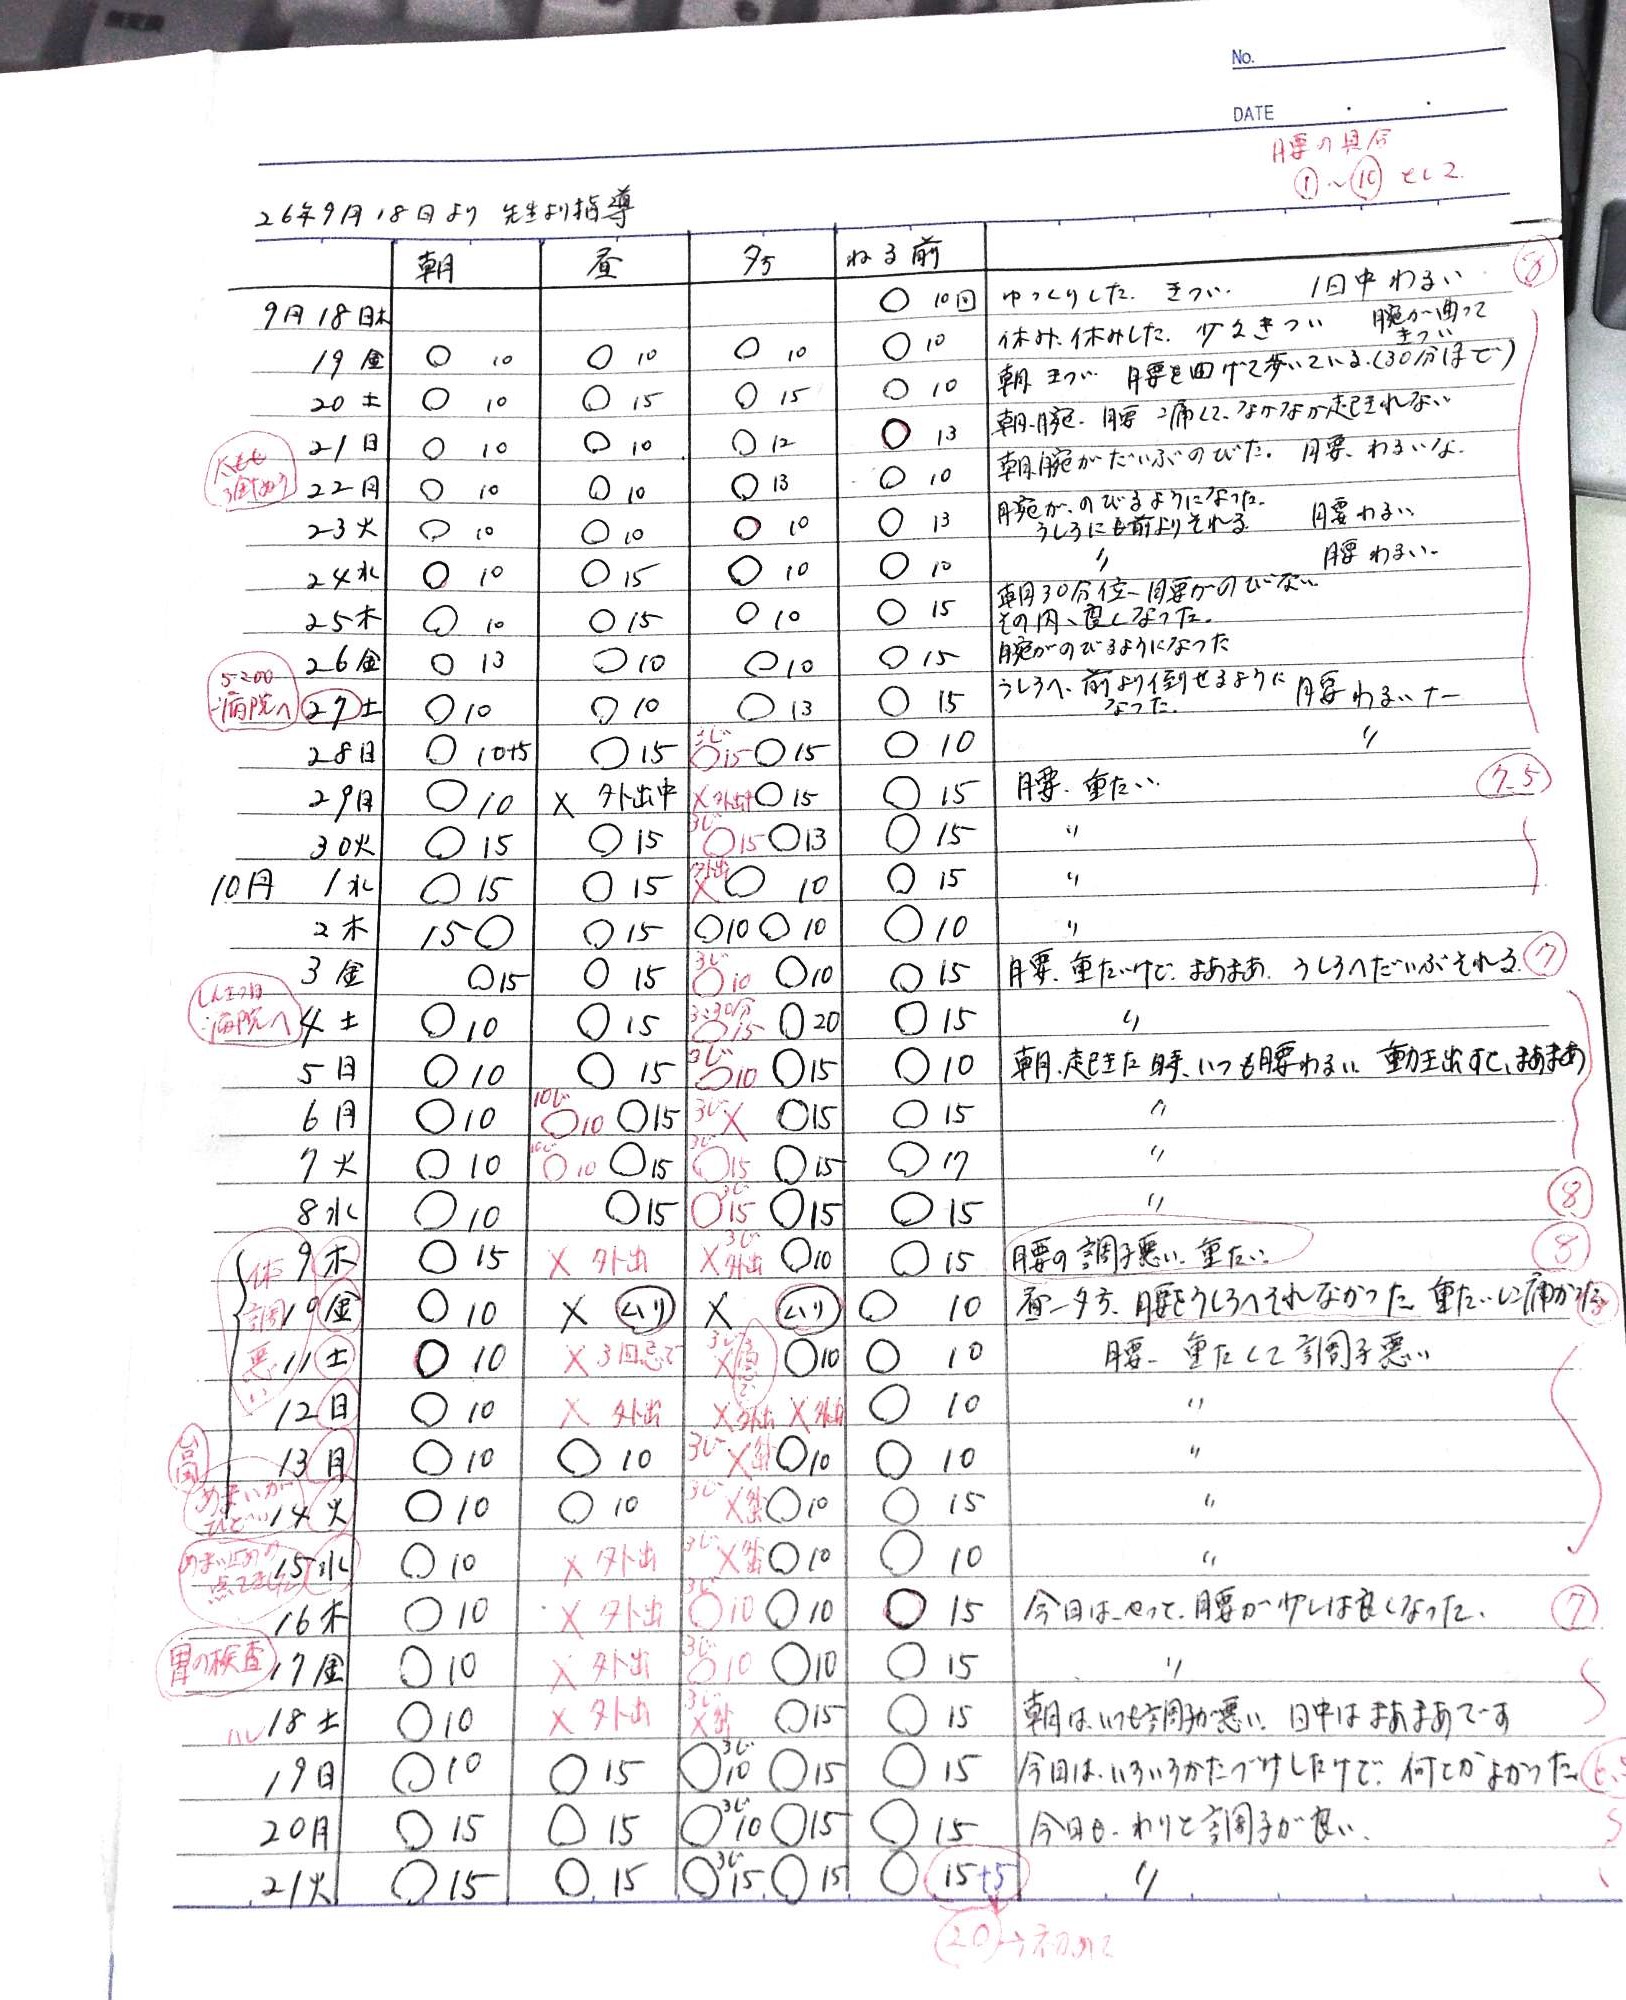 No.
DATE
腰の具合
①〜⑩として
26年9月18日より 先生より指導
朝 昼 夕方 ねる前
9月18日木 ○10回 ゆっくりした. きつい. 1日中わるい ⑧
19金 ○10 ○10 ○10 ○10 休み、休みした. 少々きつい 腕が曲って きつい
20土 ○10 ○15 ○15 ○10 朝 きつい 腰を曲げて歩いている.(30分ほど)
21日 ○10 ○10 ○12 ○13 朝.腕. 腰 痛くて、なかなか起きれない
22月 ○10 ○10 ○13 ○10 朝腕がだいぶのびた. 腰、わるいな.
23火 ○10 ○10 ○10 ○13 腕が、のびるようになった. うしろにも前よりそれる 腰わるい
24水 ○10 ○15 ○10 ○10 〃 腰わるい
25木 ○10 ○15 ○10 ○15 朝30分位 腰がのびない その内、良くなった.
26金 ○13 ○10 ○10 ○15 腕がのびるようになった
病院へ 27土 ○10 ○10 ○13 ○15 うしろへ、前より倒せるように なった. 腰わるいナー
28日 ○10+5 ○15 3じ ○15 ○15 ○10 〃
29月 ○10 × 外出中 ×外出中 ○15 ○15 腰、重たい. 7.5
30火 ○15 ○15 3じ ○15 ○13 ○15 〃
10月 1水 ○15 ○15 外出 × ○10 ○15 〃
2木 15○ ○15 ○10 ○10 ○10 〃
3金 ○15 ○15 3じ ○10 ○10 ○15 腰、重たいけど、まあまあ. うしろへだいぶそれる. ⑦
病院へ 4土 ○10 ○15 3:30分 ○15 ○20 ○15 〃
5日 ○10 ○15 3じ ○10 ○15 ○10 朝、起きた時、いつも腰わるい 動き出すと、まあまあ
6月 ○10 10じ ○10 ○15 3じ × ○15 ○15 〃
7火 ○10 10じ ○10 ○15 3じ ○15 ○15 ○17 〃
8水 ○10 ○15 3じ ○15 ○15 ○15 〃 ⑧
体調悪い
9木 ○15 × 外出 3じ ×外出 ○10 ○15 腰の調子悪い、重たい ⑧
10金 ○10 × ムリ × ムリ ○10 昼ー夕方、腰をうしろへそれなかった 重たいし痛かった
11土 ○10 × 3回忌で 3じ × ○10 ○10 腰 重たくて調子悪い
12日 ○10 × 外出 ×外出 ×外出 ○10 〃
台風 13月 ○10 ○10 3じ ×外出 ○10 ○10 〃
めまいが ひどい 14火 ○10 ○10 3じ ×外出 ○10 ○15 〃
15水 ○10 × 外出 3じ ×外出 ○10 ○10 〃
16木 ○10 × 外出 3じ ○10 ○10 ○15 今日は やって、腰が少しは良くなった. ⑦
胃の検査 17金 ○10 × 外出 3じ ○10 ○10 ○15 〃
18土 ○10 × 外出 3じ ×外出 ○15 ○15 朝は、いつも調子が悪い 日中はまあまあです
19日 ○10 ○15 3じ ○10 ○15 ○15 今日は、いろいろかたづけしたけど、何とかよかった
20月 ○15 ○15 3じ ○10 ○15 ○15 今日も、わりと調子が良い.
21火 ○15 ○15 3じ ○15 ○15 ○15+5 〃
⑳→初めて